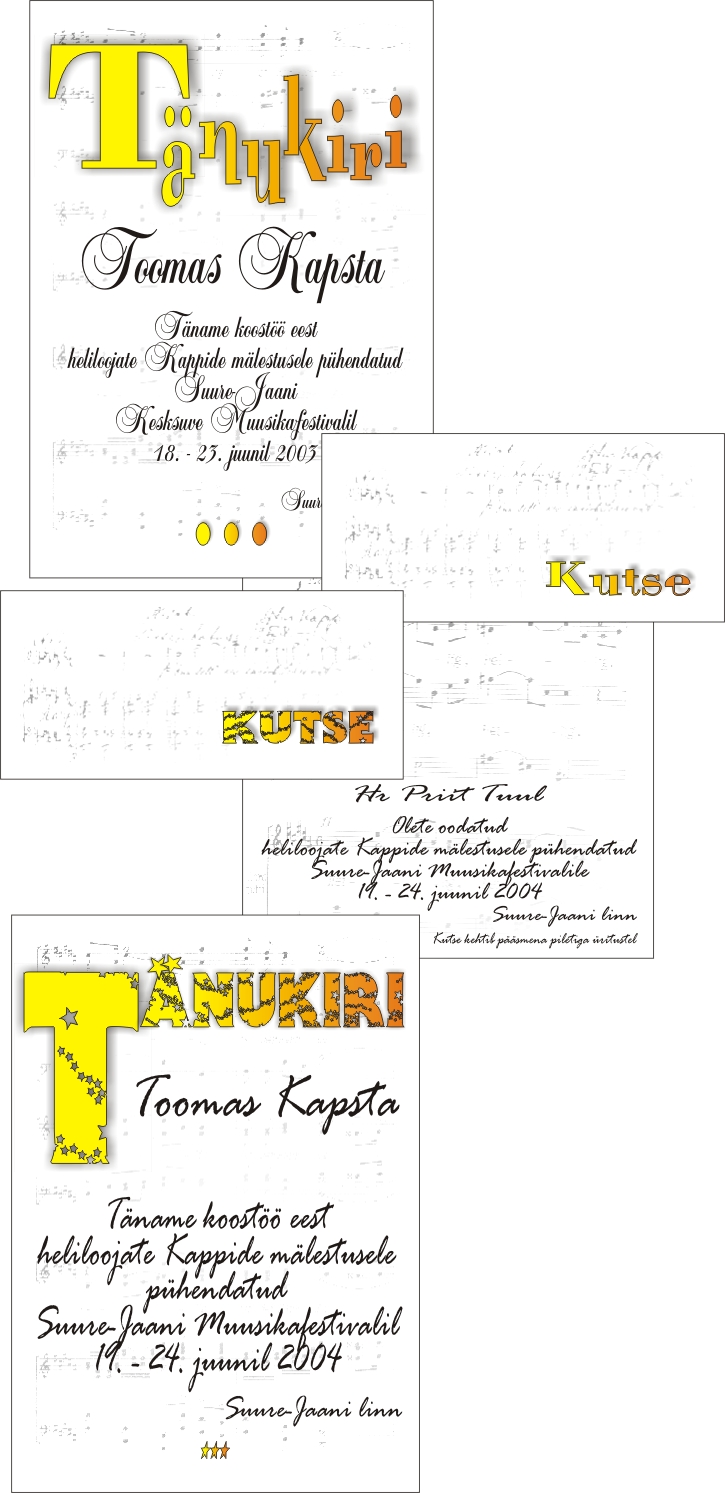 Tänukiri
Toomas Kapsta
Täname koostöö eest
heliloojate Kappide mälestusele pühendatud
Suure-Jaani
Kesksuve Muusikafestivalil
18. - 23. juunil 2003
Suur
Kutse
KUTSE
Hr Priit Tuul
Olete oodatud
heliloojate Kappide mälestusele pühendatud
Suure-Jaani Muusikafestivalile
19. - 24. juunil 2004
Suure-Jaani linn
Kutse kehtib pääsmena piletiga üritustel
TÄNUKIRI
Toomas Kapsta
Täname koostöö eest
heliloojate Kappide mälestusele
pühendatud
Suure-Jaani Muusikafestivalil
19. - 24. juunil 2004
Suure-Jaani linn